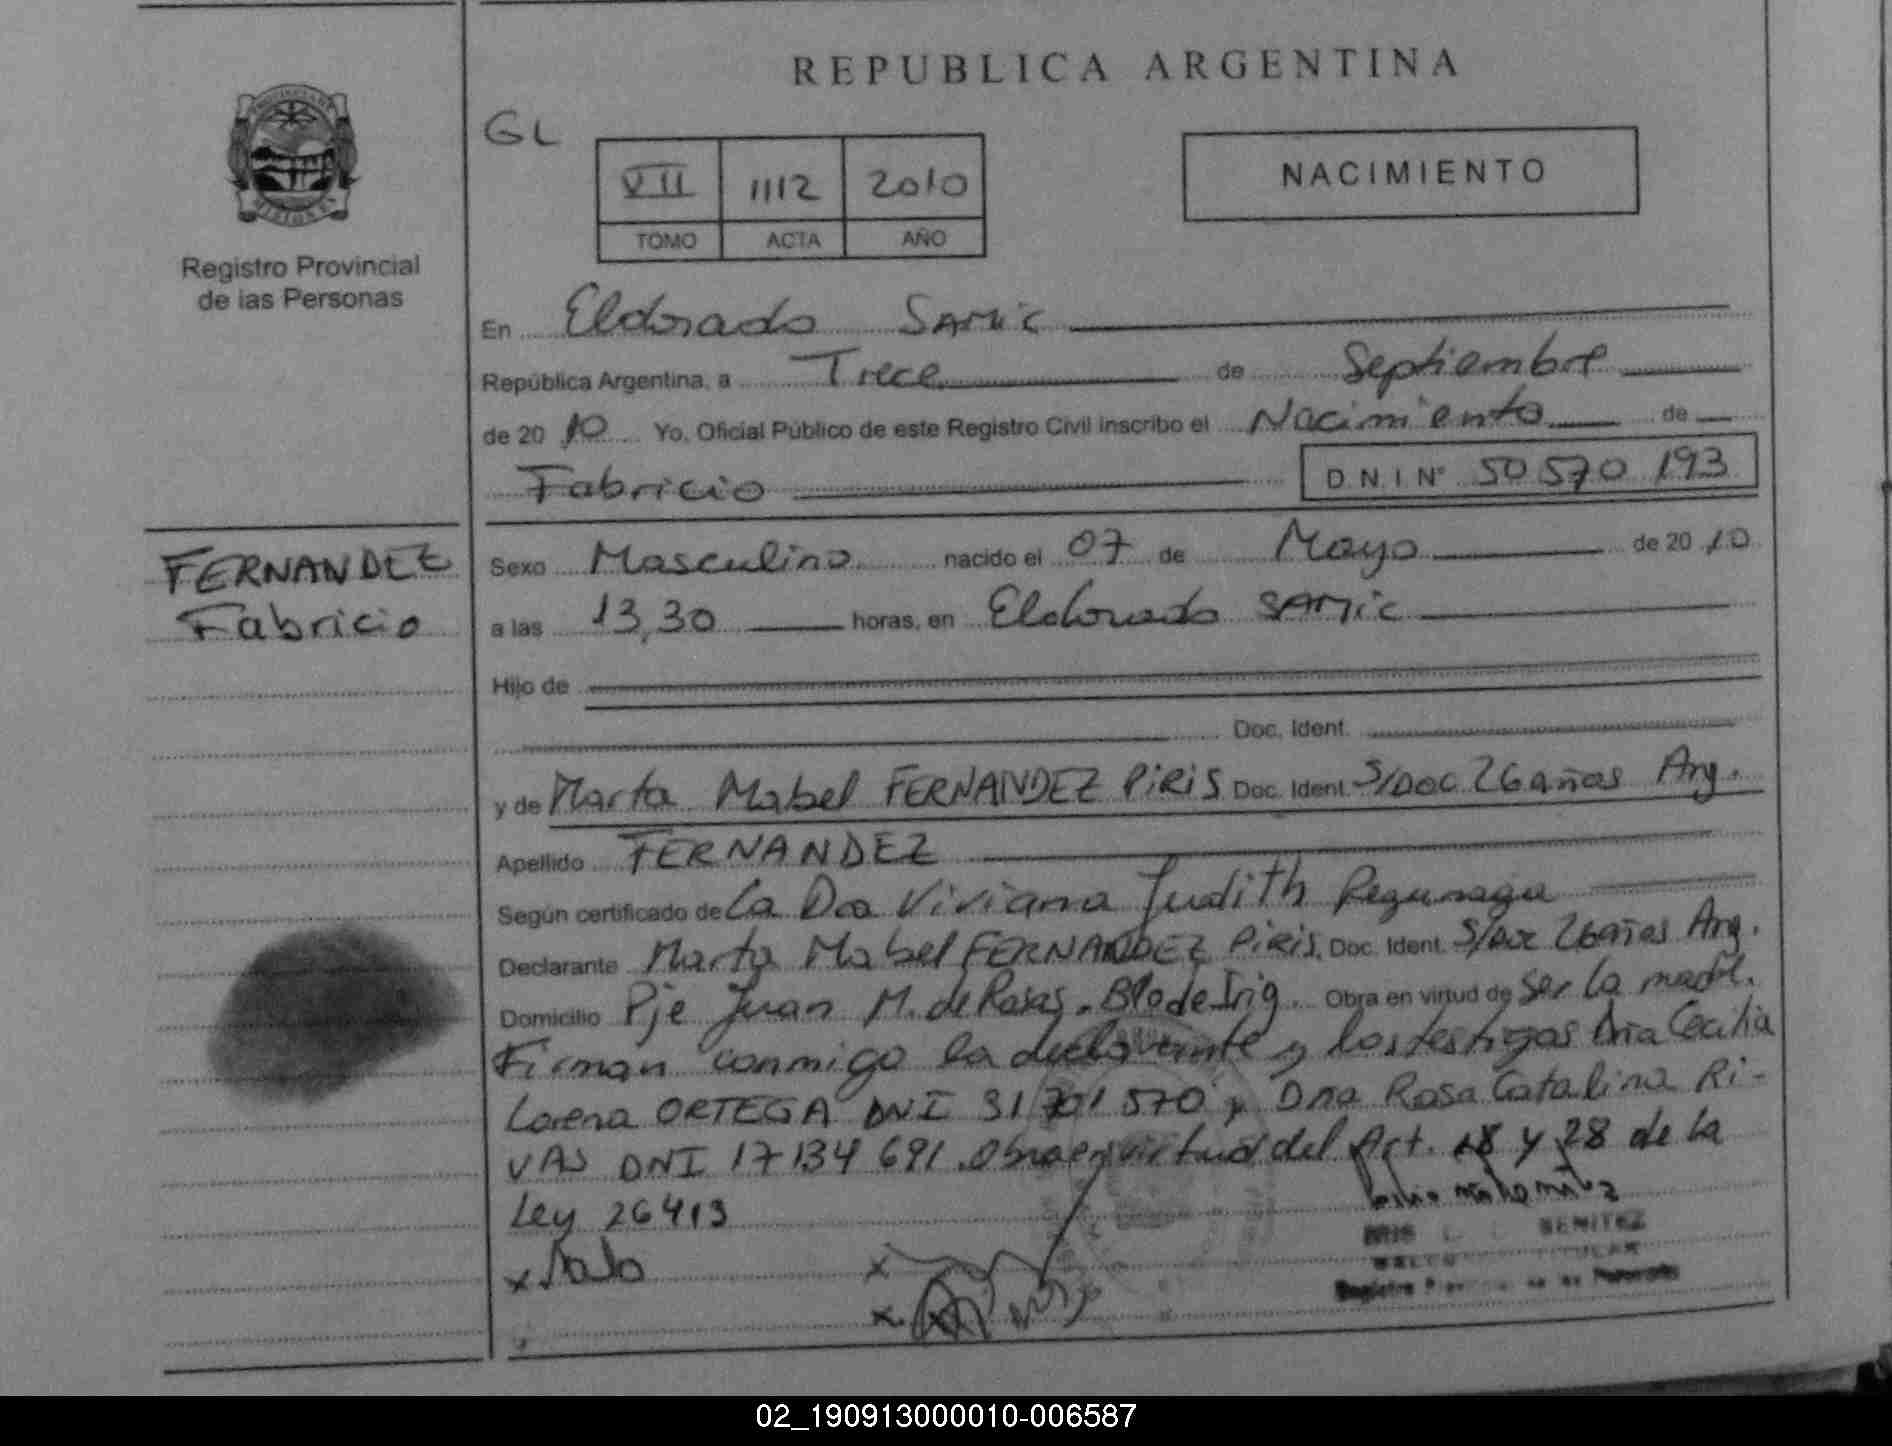 REPUBLICA ARGENTINA
PROVINCIA DE MISIONES
Registro Provincial
de las Personas
GL
VII 1112 2010
TOMO ACTA AÑO
NACIMIENTO
En Eldorado SAMIC
República Argentina, a Trece de Septiembre
de 20 10 Yo, Oficial Público de este Registro Civil inscribo el Nacimiento de
Fabricio D.N.I Nº 50 570 193
FERNANDEZ
Fabricio
Sexo Masculino nacido el 07 de Mayo de 20 10
a las 13,30 horas, en Eldorado SAMIC
Hijo de
Doc. Ident.
y de Marta Mabel FERNANDEZ PIRIS Doc. Ident. S/DOC 26 años Arg.
Apellido FERNANDEZ
Según certificado de La Dra Viviana Judith
Declarante Marta Mabel FERNANDEZ PIRIS. Doc. Ident. S/Doc 26 años Arg.
Domicilio Pje Juan M. de Rosas. Bº de Irig. Obra en virtud de ser la madre.
Firman conmigo la declarante y los testigos Dña Cecilia
Lorena ORTEGA DNI 31 701 570 y Dña Rosa Catalina RI-
VAS DNI 17 134 691. Obra en virtud del Art. 28 de la
Ley 26413
BENITEZ
TITULAR
02_190913000010-006587